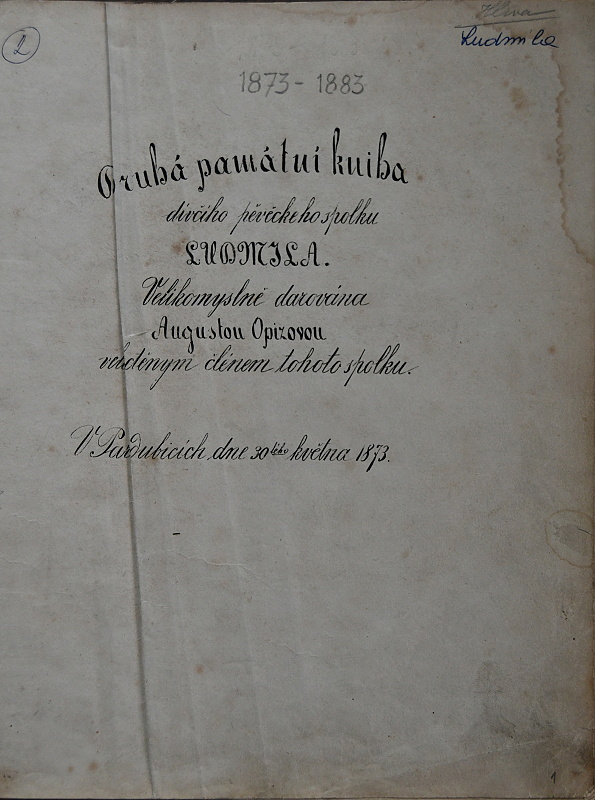 2
Hlva
Ludmila
1873 - 1883
Druhá památní kniha
dívčího pěvěckeho spolku
LUDMILA.
Velikomyslně darována
Augustou Opizovou
velectěným členem tohoto spolku.
V Pardubicích, dne 30tého května 1873.
1